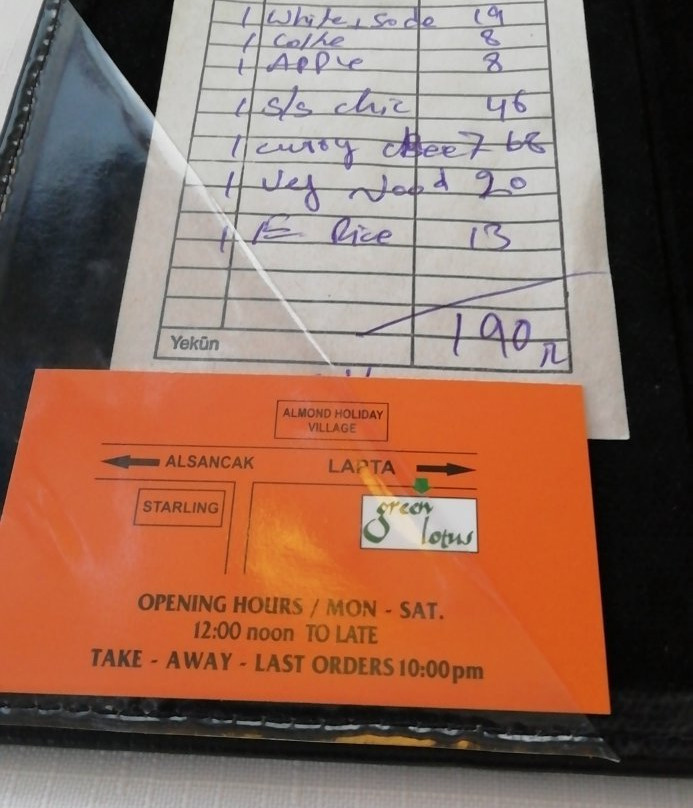 1 White, soda 19
1 Coke 8
1 Apple 8
1 s/s chic 46
1 curry 68
1 Veg Nood 20
1 E Rice 13
190
Yekûn
ALMOND HOLIDAY
VILLAGE
ALSANCAK LAPTA
STARLING
green
lotus
OPENING HOURS / MON - SAT.
12:00 noon TO LATE
TAKE - AWAY - LAST ORDERS 10:00pm